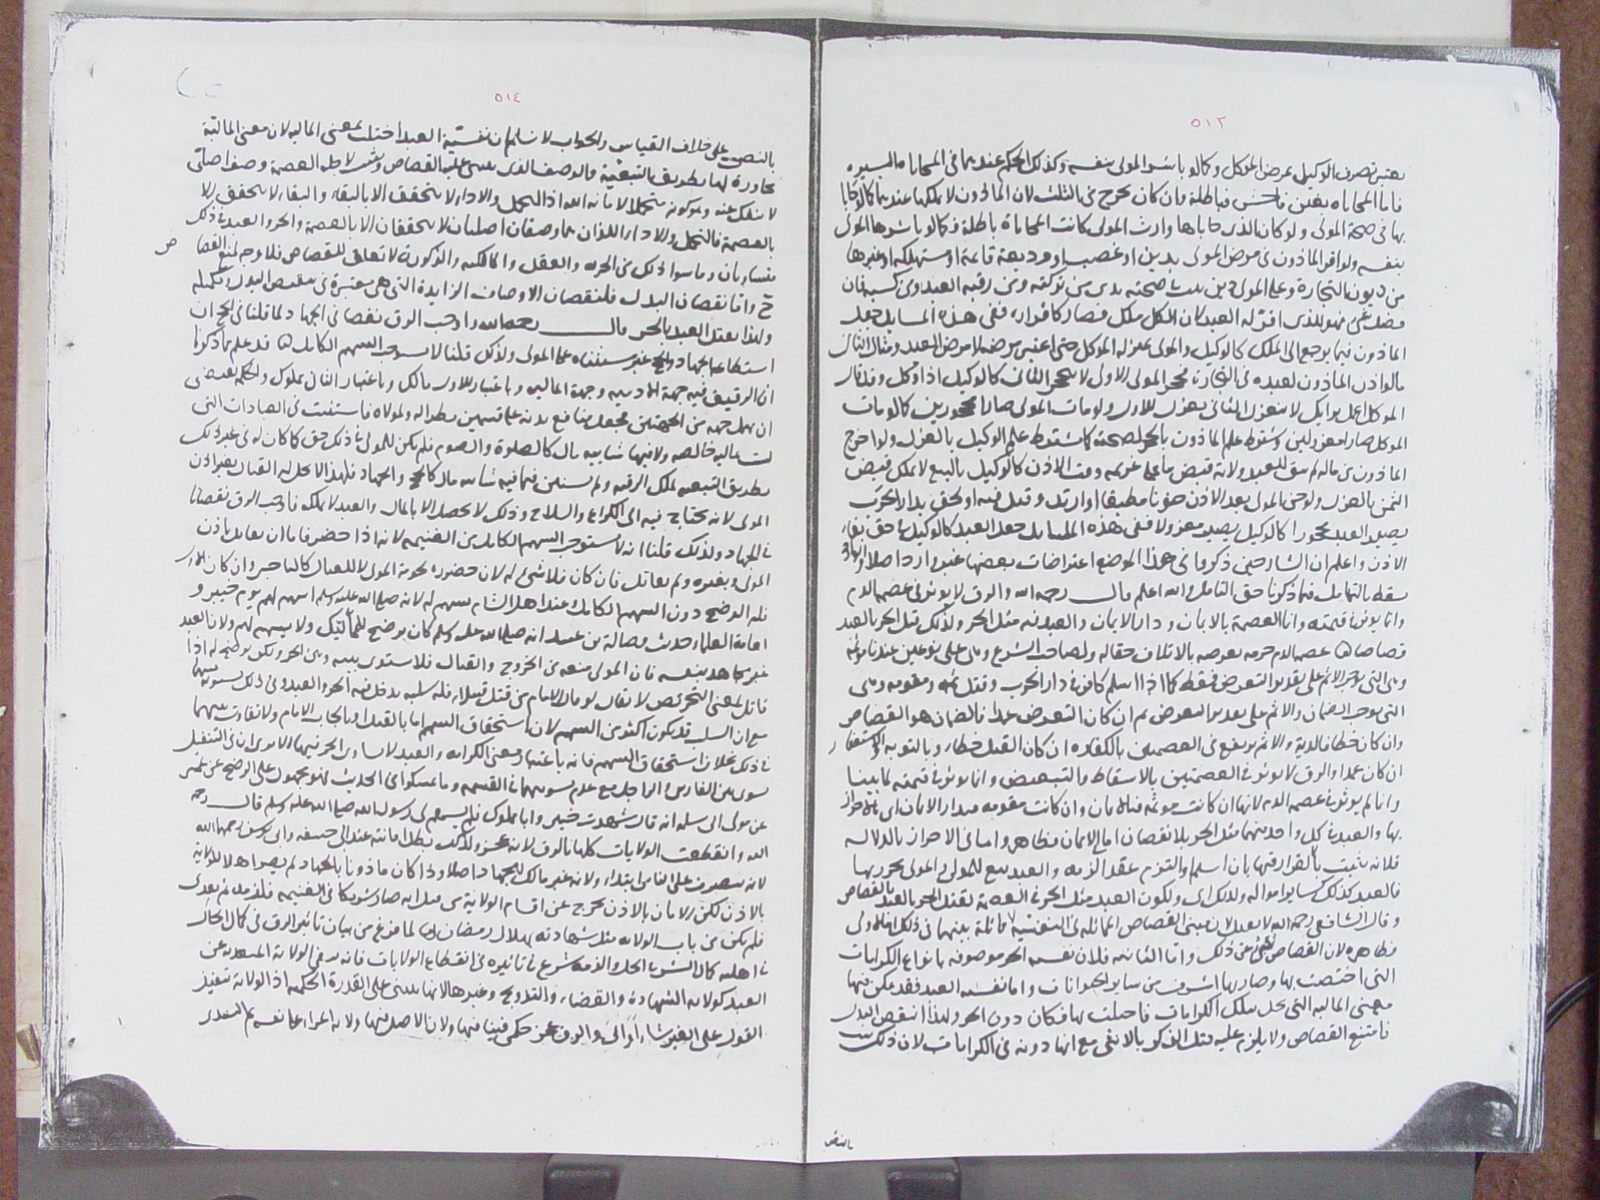 ٥١٣
يعتبر تصرف الوكيل بمرض الموكل وكالو باشر المولى بنفسه وكذلك الحكم عندهما في المحاباة اليسيره
فاما المحاباه بغبن فاحش فباطلة وان كان يخرج من الثلث لان الماذون لا يملكها عندهما كالوحابا
بها في صحة المولى ولو كان الذي حاباها وارث المولى كانت المحاباة باطلة كالو باشرها المولى
بنفسه ولو اقر الماذون في مرض المولى بدين او غصب او وديعة قائمة او مستهلكة او غيرها
من ديون التجارة وعلى المولى دين صحته بدى من تركته ومن رقبة العبد وكسبه فان
فضل شئ فهو للذي اقر له العبد لان الكل ملكه فصار كاقراره ففي هذه المسايل جعل
الماذون فيما يرجع الى الملك كالوكيل والمولى بمنزلة الموكل حتى اعتبر مرضه لا مرض العبد ومثال الثاني
مالو اذن الماذون لعبده في التجارة فحجر المولى الاول لا ينحجر الثاني كالوكيل اذا وكل وقد قال
الموكل اعمل برايك لا ينعزل الثاني بعزل الاول ولو مات المولى صارا محجورين كالو مات
الموكل صارا معزولين وشرط علم الماذون بالحجر لصحته كما شرط علم الوكيل بالعزل ولو اخرج
الماذون من ماله لم يبق للعبد ولاية قبض ما على غريمه وقت الاذن كالوكيل بالبيع لا يملك قبض
الثمن بالعزل ولو جن المولى بعد الاذن جنونا مطبقا او ارتد وقتل فيه او لحق بدار الحرب
يصير العبد محجورا كالوكيل يصير معزولا ففي هذه المسايل جعل العبد كالوكيل في حق بقاء
الاذن واعلم ان الشارحين ذكروا في هذا الموضع اعتراضات بعضها غير وارد اصلا
يسقط بالتامل فيما ذكرنا حق التامل والله اعلم قال رحمه الله والرق لا يؤثر في عصمة الدم
وانما يؤثر في قيمته وانما العصمة بالايمان ودار الايمان والعبد فيه مثل الحر ولذلك قتل الحر بالعبد
قصاصا عصمة الدم حرمة تعرضه بالاتلاف حقا له ولصاحب الشرع وهي على نوعين عندنا مؤثمة
وهي التي توجب الاثم على تقدير التعرض فقط كما اذا اسلم كافر في دار الحرب وقتل ثمه ومقومة وهي
التي توجب الضمان والاثم على تقدير التعرض ثم ان كان التعرض عمدا فالضمان هو القصاص
وان كان خطا فالدية والاثم يرتفع في العصمتين بالكفارة ان كان القتل خطاء وبالتوبة والاستغفار
ان كان عمدا والرق لا يؤثر في العصمتين بالاسقاط والتبعيض وانما يؤثر في قيمته لما بينا
وانما لم يؤثر في عصمة الدم لانها ان كانت مؤثمة فبالايمان وان كانت مقومة فبدار الايمان اي بالاحراز
بها والعبد في كل واحد منهما مثل الحر بلا نقصان اما في الايمان فظاهر واما في الاحراز بالدار
فلانه يثبت بالقرار فيها بان اسلم والتزم عقد الذمة والعبد تبع للمولى والمولى محرز بها
فالعبد كذلك كسائر امواله ولذلك اي ولكون العبد مثل الحر في العصمة يقتل الحر بالعبد بالقصاص
وقال الشافعي رحمه الله لا يقتل لان مبنى القصاص المماثلة في النفسية ولا مماثلة بينهما في ذلك اما الاولى
فظاهرة لان القصاص ينبئ عن ذلك واما الثانية فلان نفس الحر موصوفة بانواع الكرامات
التي اختصت بها وصار بها اشرف من سائر الحيوانات واما نفس العبد فقد تمكن فيها
معنى المالية التي تخل بملك الكرامات فاختلت بها فكان دون الحر ولهذا انتقص البدل
فامتنع القصاص ولا يلزم عليه قتل الذكر بالانثى مع انها دونه في الكرامات لان ذلك ثبت
بالنص
٥١٤
بالنص على خلاف القياس والجواب لا نسلم ان نفسية العبد اختلت بمعنى المالية لان معنى المالية
مجاورة لها بطريق التبعية فالوصف الذي يبتنى عليه القصاص وشرع لاجله العصمة وصف اصلي
لا ينفك عنه وهو كونه متحملا لامانة الله اذ التحمل والاداء لا يتحقق الا بالبقاء والبقاء لا يتحقق الا
بالعصمة فالتحمل والاداء اللذان هما وصفان اصليان لا يتحققان الا بالعصمة والحر والعبد في ذلك
متساويان وما سوا ذلك من الحرية والعقل والمالكية والذكورة لا تعلق للقصاص فلا وجه لمنع القصاص
ح واما نقصان البدل فلنقصان الاوصاف الزايدة التي هي معتبرة في تنقيص البدل وتكميله
ولهذا يقتل العبد بالحر قال رحمه الله واوجب الرق نقصا في الجهاد لما قلنا في الحج ان
استطاعة الجهاد والحج غير مستثناه على المولى ولذلك قلنا لا يستوجب السهم الكامل قد علم بما ذكرنا
ان الرقيق فيه جهة الادمية وجهة المالية وباعتبار الاول مالك وباعتبار الثاني مملوك والحكمة تقتضي
ان يعمل جهة من الجهتين فجعل منافع بدنه على قسمين نظرا له ولمولاه فاستثنيت في العبادات التي
ليست مالية خالصة ولا فيها شايبة مال كالصلوة والصوم فلم يكن للمولى في ذلك حق كما كان له في غير ذلك
بطريق التبعية لملك الرقبة ولم يستثن فيما فيه شايبة مال كالحج والجهاد فلهذا لا يحل له القتال بغير اذن
المولى لانه يحتاج فيه الى الكراع والسلاح وذلك لا يحصل الا بالمال والعبد لا يملكه فاوجب الرق نقصانا
في الجهاد ولذلك قلنا انه لا يستوجب السهم الكامل من الغنيمة لانه اذا حضر فاما ان يقاتل باذن
المولى او بغيره ولم يقاتل فان كان فلا شئ له لان حضوره لخدمة المولى لا للقتال كالتاجر وان كان الاول
فله الرضخ دون السهم الكامل وعند اهل الشام يسهم له لانه صلى الله عليه وسلم اسهم لهم يوم خيبر و
لعامة العلماء حديث فضالة بن عبيد انه صلى الله عليه وسلم كان يرضخ للمماليك ولا يسهم لهم ولان العبد
غير مجاهد بنفسه فان المولى منعه من الخروج والقتال فلا يستوي بينه وبين الحر ولكن يرضخ له اذا
قاتل لمعنى التحريض لا يقال لو قال الامام من قتل قتيلا فله سلبه يدخل فيه الحر والعبد وفي ذلك تسوية بينهما
مع ان السلب قد يكون اكثر من السهم لان استحقاق السهم اما بالقتل او بايجاب الامام ولا تفاوت بينهما
في ذلك بخلاف استحقاق السهم فانه باعتبار معنى الكرامة والعبد لا يساوي الحر فيها الا يرى ان في التنفيل
سوى بين الفارس والراجل مع عدم تسويتهما في القسمة وما تمسكوا من الحديث فهو محمول على الرضخ عن عمير
عن مولى ابي اللحم انه قال شهدت خيبر وانا مملوك فلم يسهم لي رسول الله صلى الله عليه وسلم قال رحمه
الله وانقطعت الولايات كلها بالرق لانه عجز ولذلك بطل امانه عند ابي حنيفة وابي يوسف رحمهما الله
لانه يتصرف على الناس ابتداء ولانه غير مالك للجهاد اصلا واذا كان ماذونا بالجهاد لم يصر اهلا للولاية
بالاذن لكن الامان بالاذن يخرج عن اقسام الولاية من قبل انه صار شريكا في الغنيمة فلزمه ثم تعدى
فلم يكن من باب الولاية مثل شهادته بهلال رمضان لما فرغ من بيان تاثير الرق في كمال الحال
في اهلية كمال البشرية الحل والذمة شرع في تاثيره في انقطاع الولايات فانه ينفي الولاية المتعدية عن
العبد كولاية الشهادة والقضاء والتزويج وغيرها لانها تبتنى على القدرة الحكمية اذ الولاية تنفيذ
القول على الغير شاء او ابى والرق عجز حكمي فينافيها ولان الاصل فيها ولاية المرء على نفسه ثم التعدي